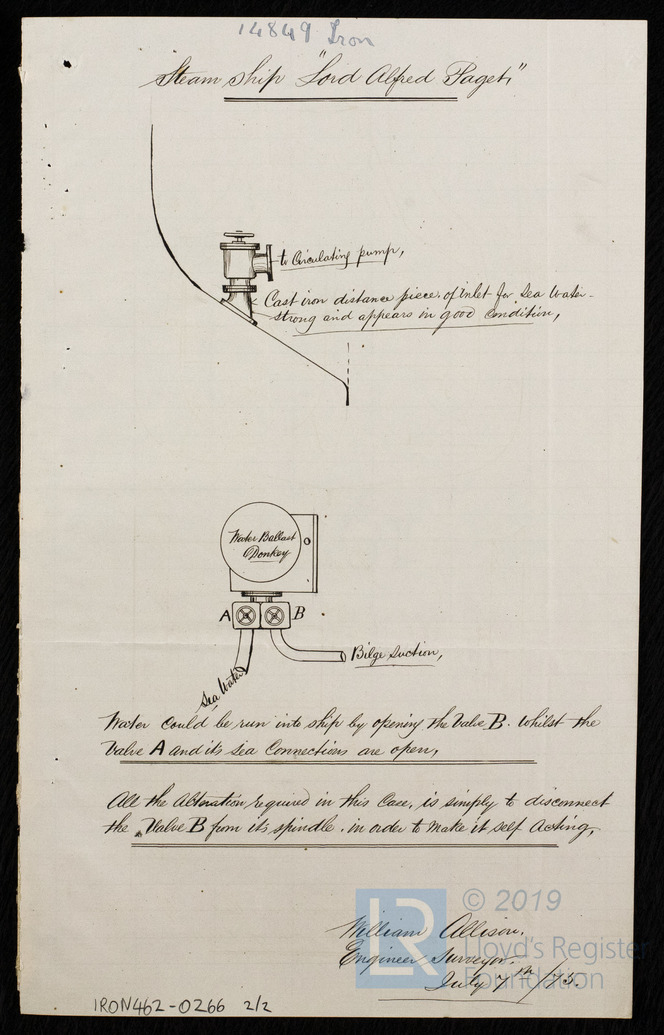 14849 Iron
Steam Ship "Lord Alfred Paget"
to Circulating pump,
Cast iron distance piece of inlet for Sea Water -
strong and appears in good Condition,
Water Ballast
Donkey
A B
Bilge Suction,
Sea Water
Water could be run into ship by opening the Valve B. whilst the
Valve A and its sea Connections are open,
All the Alteration required in this Case, is simply to disconnect
the Valve B from its spindle. in order to make it self Acting,
William Allison.
Engineer Surveyor.
July 7th/75.
LR © 2019
Lloyd's Register
Foundation
IRON462-0266 2/2